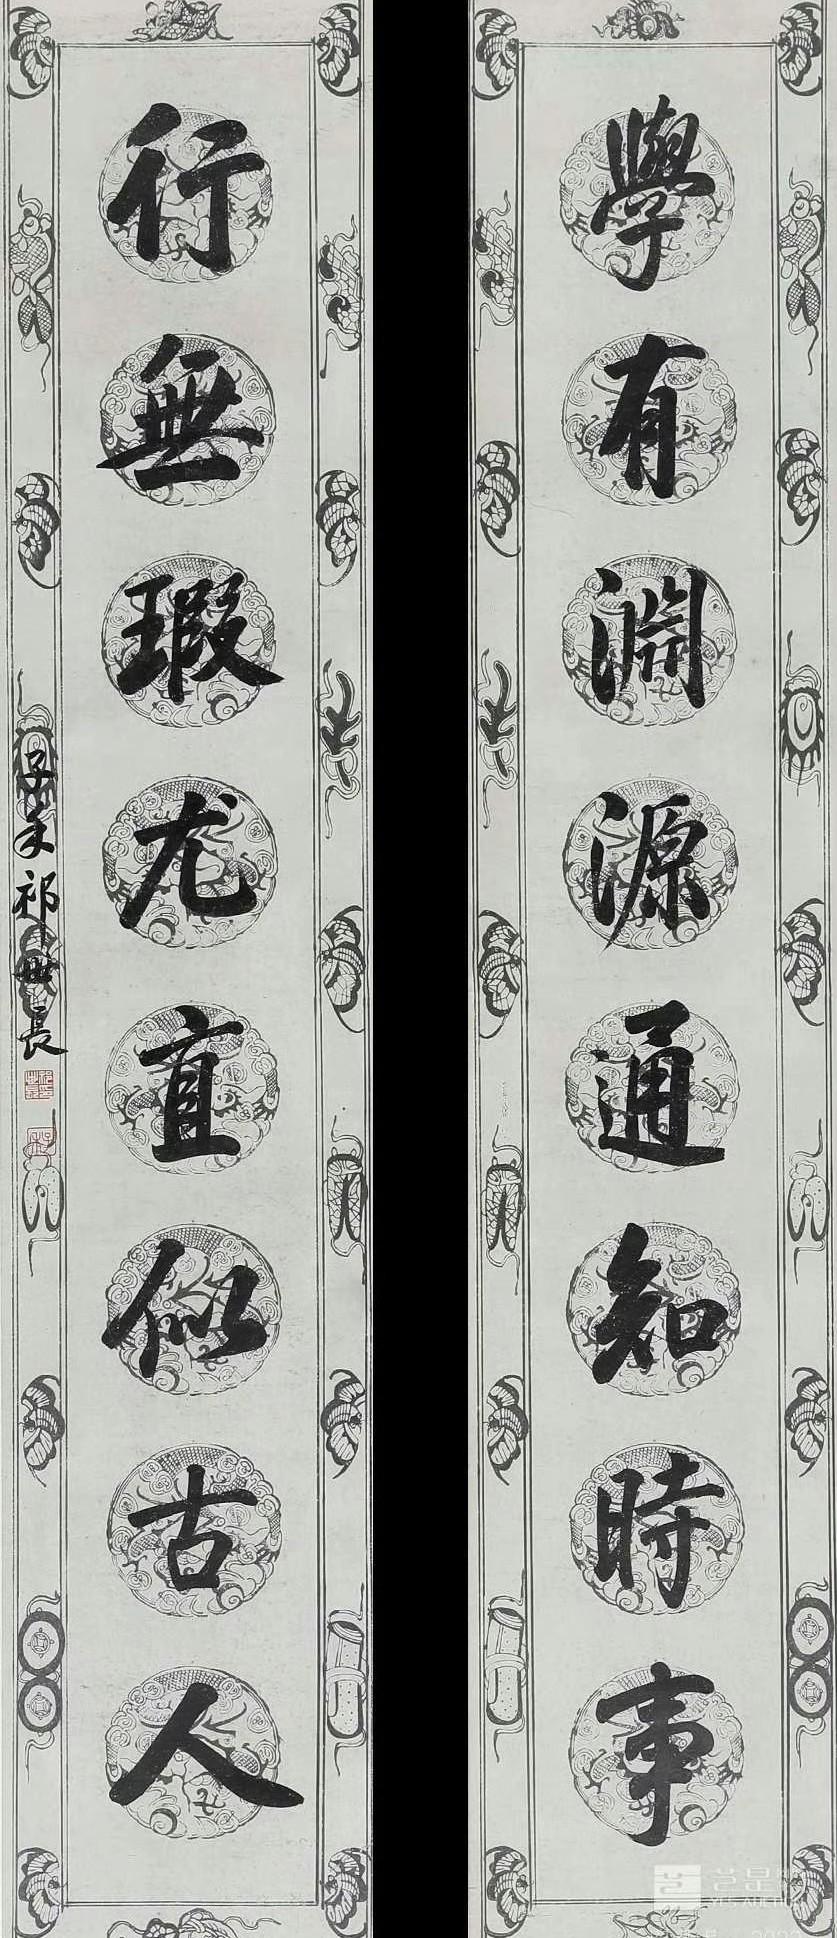 學有淵源通知時事
行無瑕尤直似古人
子禾祁世長